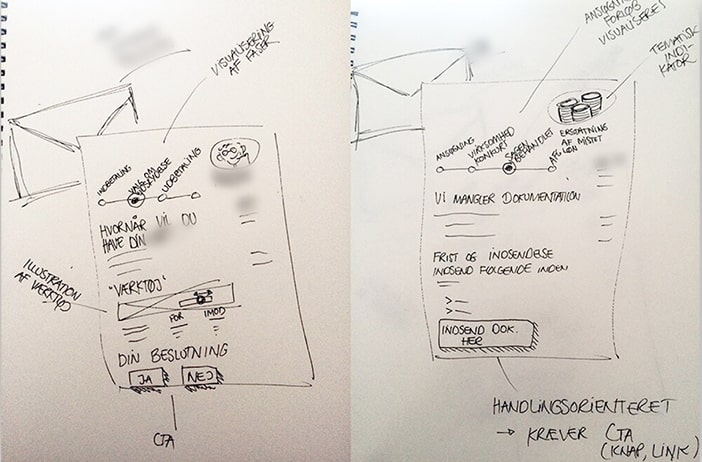 VISUALISERING
AF FASER
INDBETALING
VALG OM
UDBETALING
HVORNÅR VIL DU
HAVE DIN
ILLUSTRATION
AF VÆRKTØJ
"VÆRKTØJ"
FOR IMOD
DIN BESLUTNING
JA NEJ
CTA
FORLØB
VISUALISERET
TEMATISK
INDI-
KATOR
ANSØGNING
VIRKSOMHED
KONKURS
SAGEN
BEHANDLET
AFG.
ERSTATNING
AF MISTET
LØN
VI MANGLER DOKUMENTATION
FRIST OG INDSENDELSE
INDSEND FØLGENDE INDEN
INDSEND DOK.
HER
HANDLINGSORIENTERET
→ KRÆVER CTA
(KNAP, LINK)